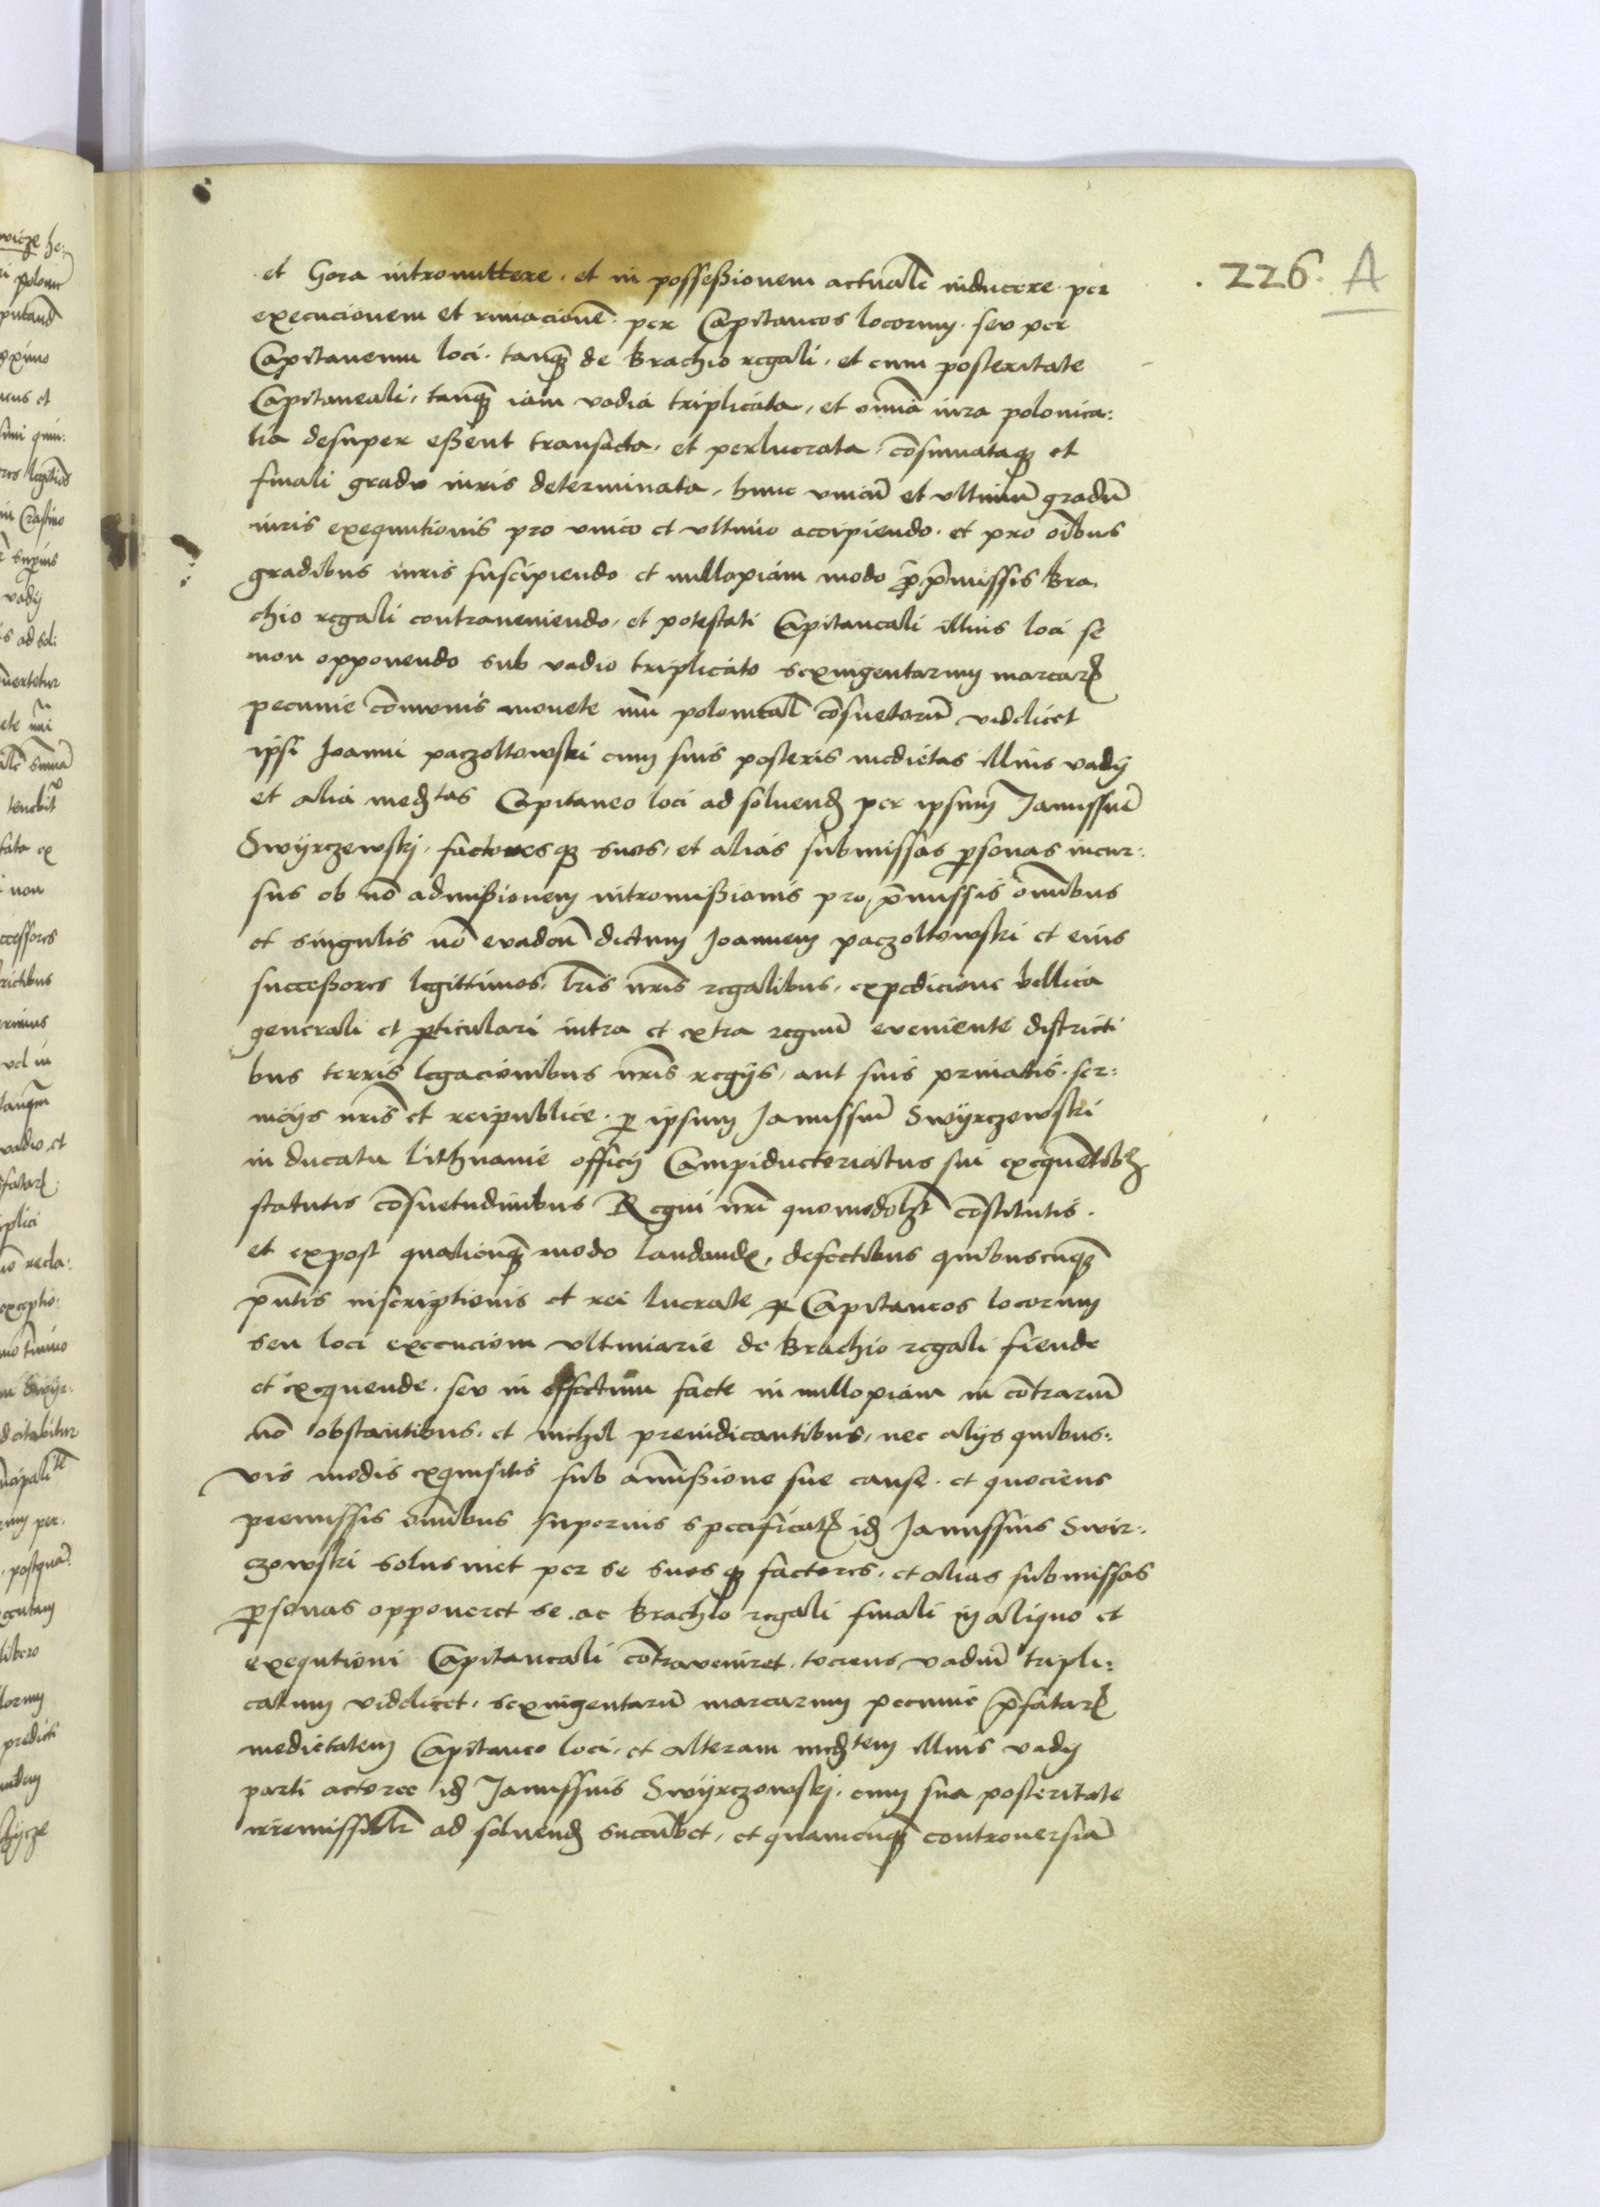 .226. A
et Gora intromittere, et in possessionem actualē inducere per
execucionem et rimacionē per Capitaneos locorum seu per
Capitaneum loci, tanq̃ de Brachio regali, et cum posteritate
Capitaneali, tanq̃ iam vadia triplicata, et om̄ia iura polonica:
lia desuper essent transacta, et perlucrata, cōsumataq̃ et
finali gradu iuris determinata, hunc vnicū et vltimū gradū
iuris exequutionis pro vnico et vltimo accipiendo, et pro oībus
gradibus iuris suscipiendo et nullopiam modo p̄missis Bra,
chio regali contraueniendo, et potestati Capitaneali illius loci se
non opponendo sub vadio triplicato sexingentarum marcarꝝ
pecunie cōmunis monete polonicalī cōsuetarū videlicet
ipsi Joanni paczoltowski cum suis posteris medietas illius vadij
et alia medtas Capitaneo loci ad soluendꝫ per ipsum Janussiū
Swyrczewskj, factoresq̃ suos, et alias submissas p̱sonas incur:
sus ob nō admissionem intromissionis pro p̄missis om̄ibus
et singulis nō euadeñ dictum Joannem paczoltowski et eius
successores legittimos, l̄ris n̄ris regalibus, expedicione bellica
generali et ꝑticulari intra et extra regnū eueniente districti
bus terris legacionibus n̄ris regijs, aut suis priuatis ser:
uicijs n̄ris et reipublice, ꝑ ipsum Janussiū Swyrczewski
in ducatu Lithuanie officij Campiductoriatus sui exequētibꝫ
statutis cōsuetudinibus Regni n̄ri quomodolꝫt cōstitutis.
et expost qualicunq̃ modo laudandꝫ, defectibus quibuscunq̃
p̄ntis inscriptionis et rei lucrate ꝑ Capitaneos locorum
seu loci execucioni vltimarie de Brachio regali fiende
et exequende, seu in effectum facte in nullopiam in cōtrariū
nō obstantibus, et nichil preiudicantibus, nec alijs quibus:
vis modis exquisitis sub amissione sue cause, et quociens
premissis om̄ibus superius specificatꝫ idꝫ Janussius Swir:
czowski solusmet per se suosq̃ factores, et alias submissas
p̱sonas opponeret se ac Brachio regali finali in aliquo et
exequtioni Capitaneali cōtraveniret, tociens vadiū tripli:
catum videlicet, sexingentarū marcarum pecunie p̄fatarꝝ
medietatem Capitaneo loci, et alteram medtem illius vadij
parti actoree idꝫ Janussius Swyrczowskj, cum sua posteritate
irremissibilr̄ ad soluendꝫ succūbet, et quamcunq̃ controuersiā